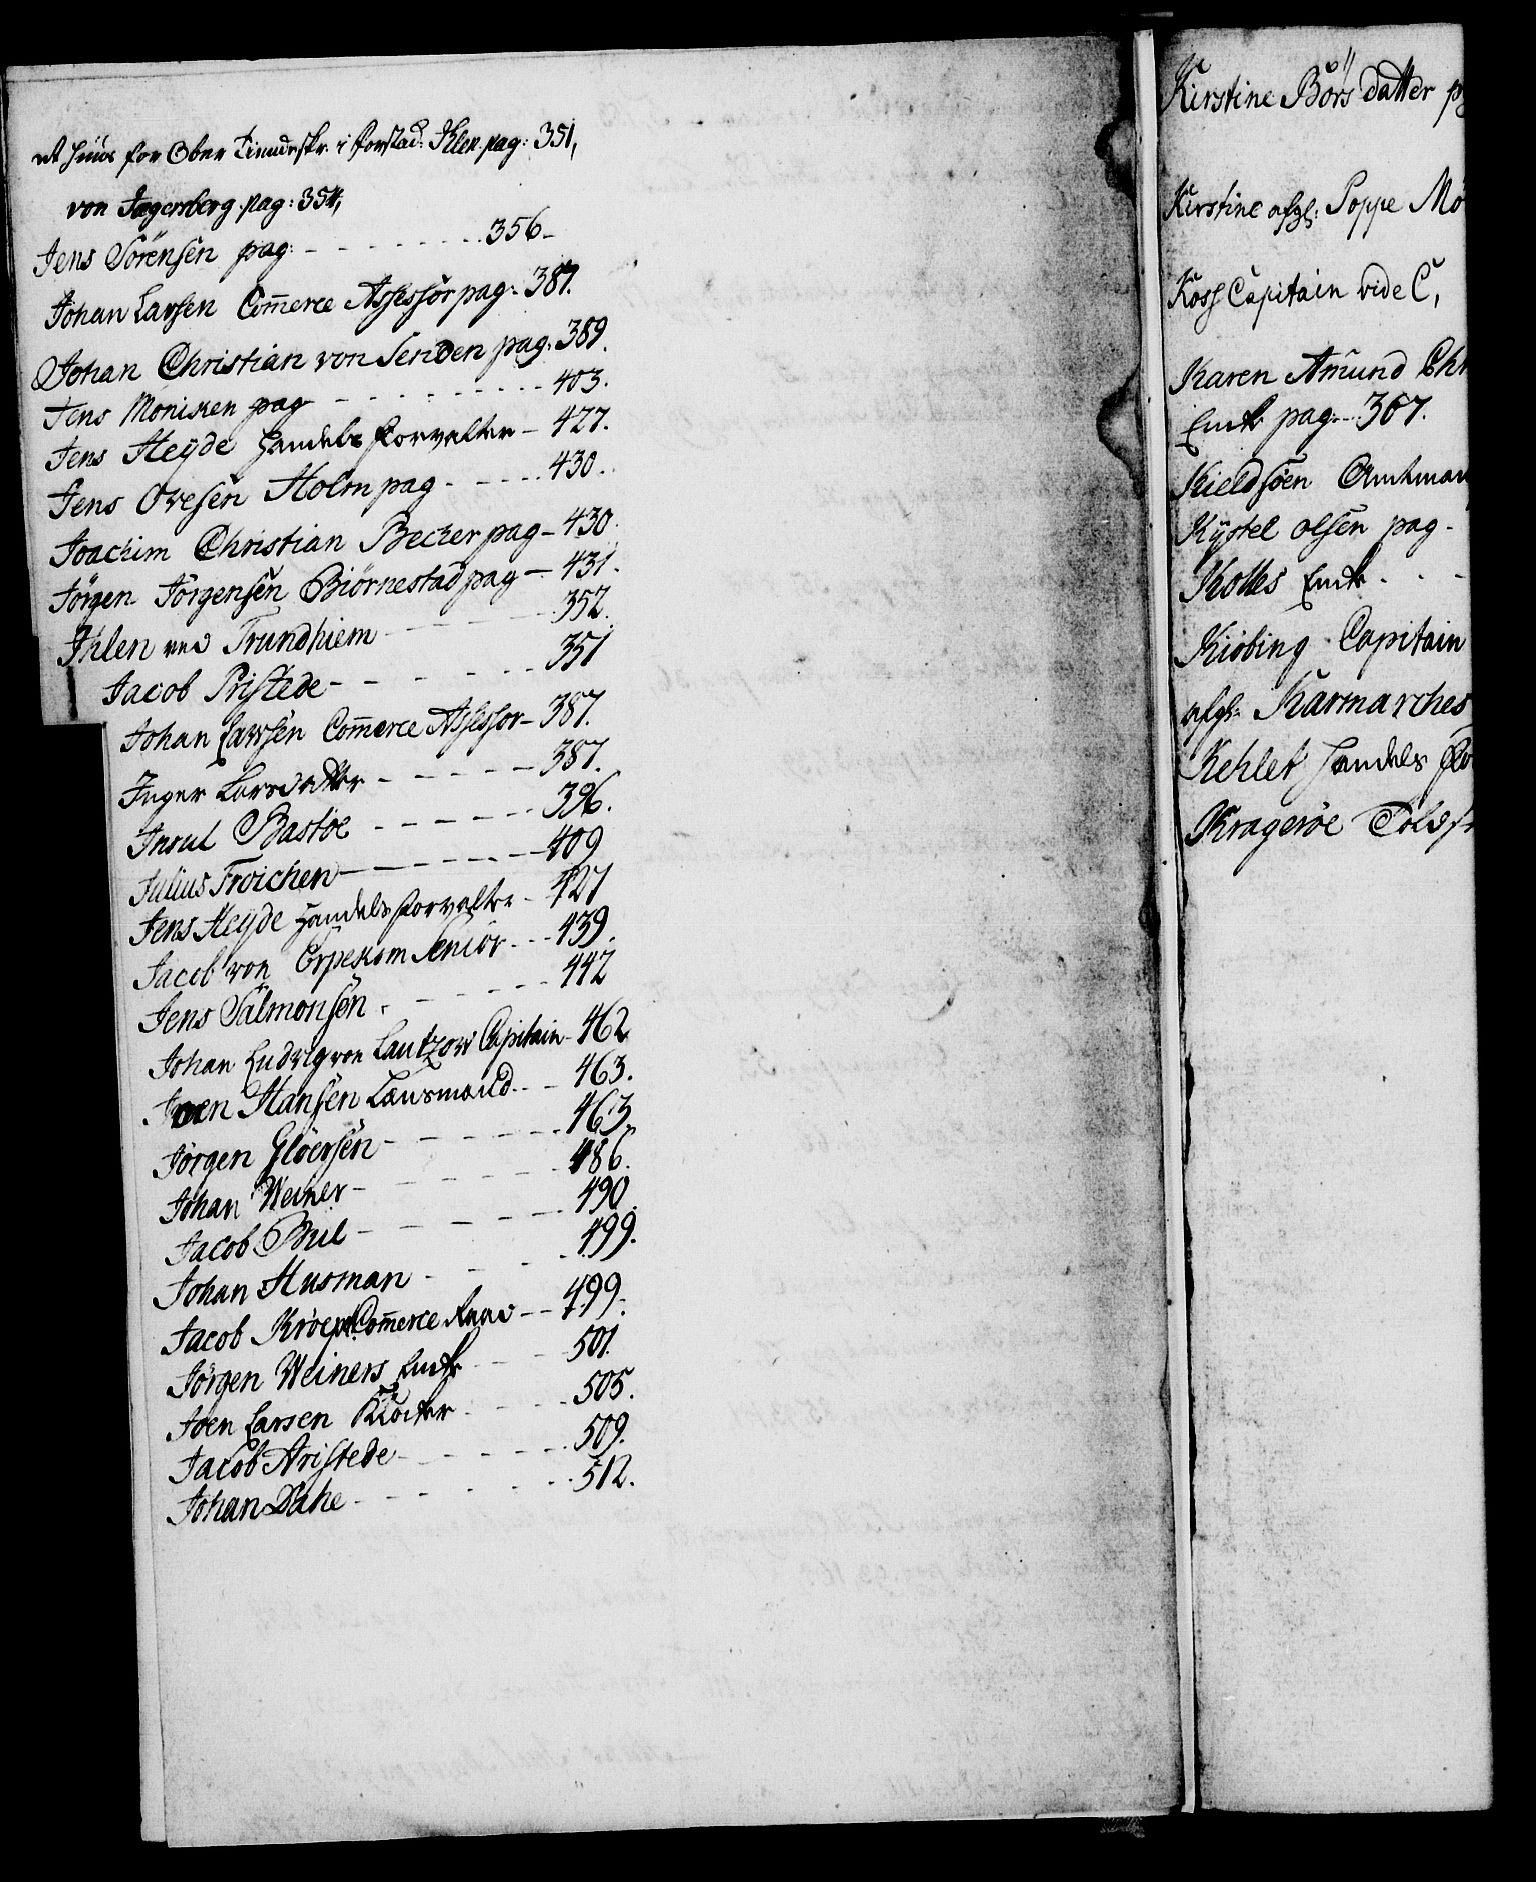 et Huus for Ober Tiendeskr. i forstad: Ihlen. pag: 351,
von Jægersberg. pag: 354,
Jens Sörensen pag: - - - - - - - - 356-
Johan Larsen Com̄erce Assessor pag:. 387.
Johan Christian von Senden pag: 389.
Jens Monisen pag - - - - - - - 403.
Jens Heyde Handels Forvalter - 427.
Jens Ovesen Holm pag - - - - - 430.
Joachim Christian Becker pag - 430.
Jörgen Jörgensen Biörnestad pag - 431.
Ihlen ved Trundhiem - - - - - - 352.
Jacob Pristede - - - - - - 351
Johan Larsen Com̄erce Assessor - 387.
Inger Larsdatter - - - - - - 387.
Bastöe - - - - - - 396.
Julius Froichen - - - - - - 409
Jens Heyde Handels forvalter - 427
Jacob von Erpekom Senior - - - 439.
Jens Salmonsen - - - - - - 442
Johan Ludvig von Lautzow Capitain - 462
Joen Hansen Lænsmand - - - 463.
Jörgen Glöersen - - - - - - 463.
Johan Weiner - - - - - - 486.
Jacob Buil - - - - - - 490.
Johan Husman - - - - - 499.
Jacob Com̄erce Raad - - 499.
Jörgen Weiners Enke - - - 501.
Joen Larsen Klocker - - - 505.
Jacob Aristede - - - - - - 509.
Johan Dahe - - - - - - - 512.
Kirstine Börs datter
Kirstine afgl: Poppe Mö
Koss Capitain vide C,
Karen Amund Chr
Enke pag: - 367.
Kieldsöen Amtman
Kystel olsen pag -
Kolbes Enke - - -
Kiöbing Capitain
afgl: Karmarches
Kehlet Handels
Krageröe Told